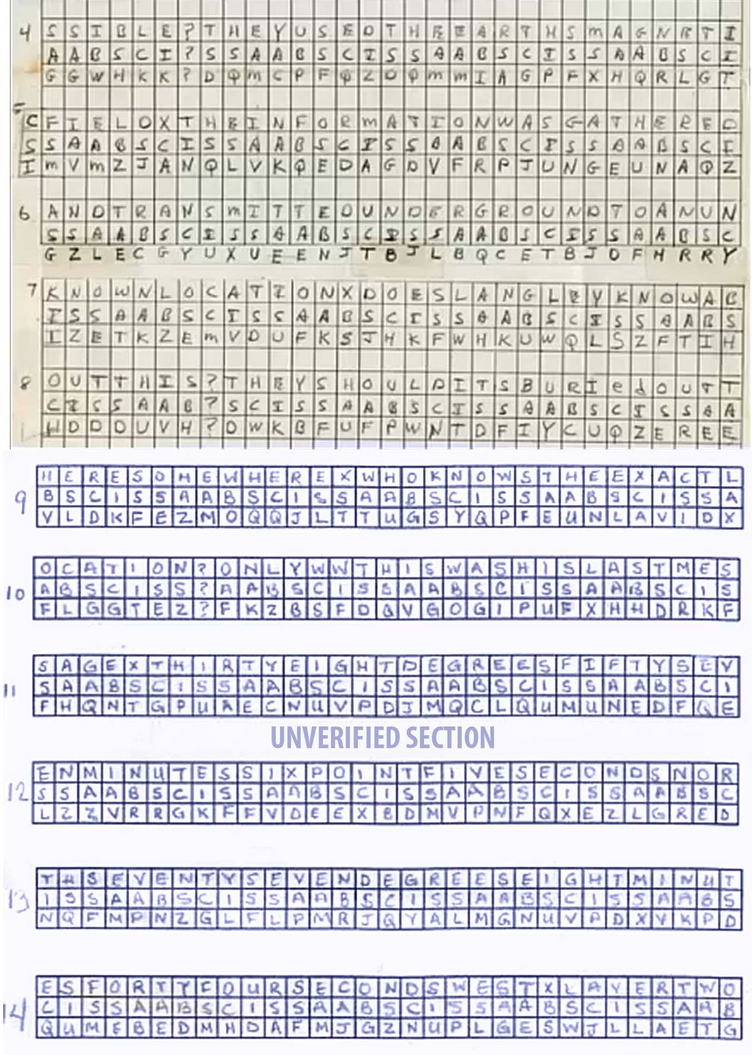 4 S S I B L E ? T H E Y U S E D T H E E A R T H S m A G N E T I
A A B S C I ? S S A A B S C I S S A A B S C I S S A A B S C I
G G W H K K ? D Q m C P F Q Z D Q m m I A G P F X H Q R L G T
5 C F I E L D X T H E I N F O R m A T I O N W A S G A T H E R E D
S S A A B S C I S S A A B S C I S S A A B S C I S S A A B S C I
I m V m Z J A N Q L V K Q E D A G D V F R P J U N G E U N A Q Z
6 A N D T R A N S m I T T E D U N D E R G R O U N D T O A N U N
S S A A B S C I S S A A B S C I S S A A B S C I S S A A B S C
G Z L E C G Y U X U E E N J T B J L B Q C E T B J D F H R R Y
7 K N O W N L O C A T I O N X D O E S L A N G L E Y K N O W A B
I S S A A B S C I S S A A B S C I S S A A B S C I S S A A B S
I Z E T K Z E m V D U F K S J H K F W H K U W Q L S Z F T I H
8 O U T T H I S ? T H E Y S H O U L D I T S B U R I e d O U T T
C I S S A A B ? S C I S S A A B S C I S S A A B S C I S S A A
H D D D U V H ? D W K B F U F P W N T D F I Y C U Q Z E R E E
9 H E R E S O M E W H E R E X W H O K N O W S T H E E X A C T L
B S C I S S A A B S C I S S A A B S C I S S A A B S C I S S A
V L D K F E Z M O Q Q J L T T U G S Y Q P F E U N L A V I D X
10 O C A T I O N ? O N L Y W W T H I S W A S H I S L A S T M E S
A B S C I S S ? A A B S C I S S A A B S C I S S A A B S C I S
F L G G T E Z ? F K Z B S F D Q V G O G I P U F X H H D R K F
11 S A G E X T H I R T Y E I G H T D E G R E E S F I F T Y S E V
S A A B S C I S S A A B S C I S S A A B S C I S S A A B S C I
F H Q N T G P U A E C N U V P D J M Q C L Q U M U N E D F Q E
UNVERIFIED SECTION
12 E N M I N U T E S S I X P O I N T F I V E S E C O N D S N O R
S S A A B S C I S S A A B S C I S S A A B S C I S S A A B S C
L Z Z V R R G K F F V O E E X B D M V P N F Q X E Z L G R E D
13 T H S E V E N T Y S E V E N D E G R E E S E I G H T M I N U T
I S S A A B S C I S S A A B S C I S S A A B S C I S S A A B S
N Q F M P N Z G L F L P M R J Q Y A L M G N U V P D X V K P D
14 E S F O R T Y F O U R S E C O N D S W E S T X L A Y E R T W O
C I S S A A B S C I S S A A B S C I S S A A B S C I S S A A B
Q U M E B E D M H D A F M J G Z N U P L G E S W J L L A E T G